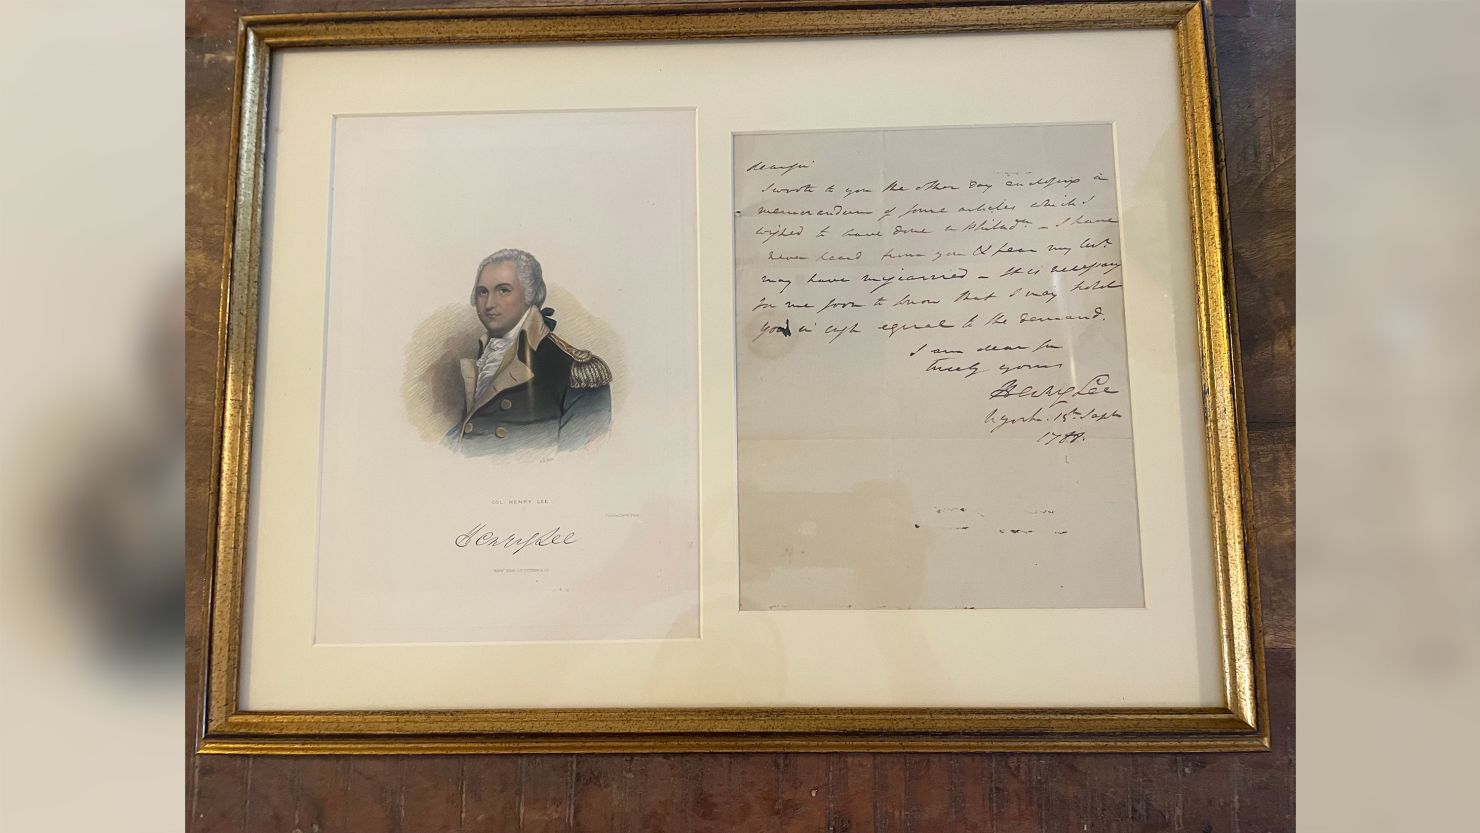 COL. HENRY LEE
Henry Lee
dear sir
I wrote to you the other day enclosing a
memorandum of some articles which I
wished to have done in Philad<sup>a</sup> – I have
never heard from you & fear my let<sup>r</sup>
may have miscarried – It is necessary
for me soon to know that I may hold
you in cash equal to the demand.
I am dear sir
truely yours
Henry Lee
N York. 15<sup>th</sup> Sept<sup>r</sup>
1788.